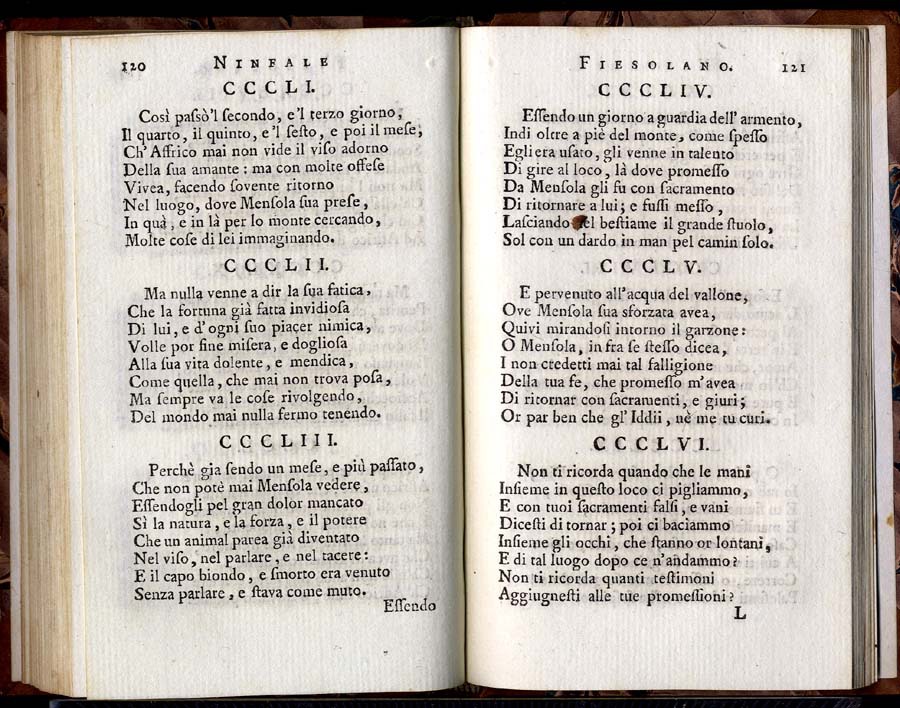 120 NINFALE
CCCLI.
Così paſsò'l ſecondo, e'l terzo giorno,
Il quarto, il quinto, e'l ſeſto, e poi il meſe;
Ch' Affrico mai non vide il viſo adorno
Della ſua amante: ma con molte offeſe
Vivea, facendo ſovente ritorno
Nel luogo, dove Menſola ſua preſe,
In quà, e in là per lo monte cercando,
Molte coſe di lei immaginando.
CCCLII.
Ma nulla venne a dir la ſua fatica,
Che la fortuna già fatta invidioſa
Di lui, e d'ogni ſuo piacer nimica,
Volle por fine miſera, e doglioſa
Alla ſua vita dolente, e mendica,
Come quella, che mai non trova poſa,
Ma ſempre va le coſe rivolgendo,
Del mondo mai nulla fermo tenendo.
CCCLIII.
Perchè gia ſendo un meſe, e più paſſato,
Che non potè mai Menſola vedere,
Eſſendogli pel gran dolor mancato
Sì la natura, e la forza, e il potere
Che un animal parea già diventato
Nel viſo, nel parlare, e nel tacere:
E il capo biondo, e ſmorto era venuto
Senza parlare, e ſtava come muto.
Eſſendo
FIESOLANO. 121
CCCLIV.
Eſſendo un giorno a guardia dell' armento,
Indi oltre a piè del monte, come ſpeſſo
Egli era uſato, gli venne in talento
Di gire al loco, là dove promeſſo
Da Menſola gli fu con ſacramento
Di ritornare a lui; e fuſſi meſſo,
Laſciando del beſtiame il grande ſtuolo,
Sol con un dardo in man pel camin ſolo.
CCCLV.
E pervenuto all'acqua del vallone,
Ove Menſola ſua sforzata avea,
Quivi mirandoſi intorno il garzone:
O Menſola, in fra ſe ſteſſo dicea,
I non credetti mai tal falligione
Della tua fe, che promeſſo m'avea
Di ritornar con ſacramenti, e giuri;
Or par ben che gl' Iddii, nè me tu curi.
CCCLVI.
Non ti ricorda quando che le mani
Inſieme in queſto loco ci pigliammo,
E con tuoi ſacramenti falſi, e vani
Diceſti di tornar; poi ci baciammo
Inſieme gli occhi, che ſtanno or lontani,
E di tal luogo dopo ce n'andammo?
Non ti ricorda quanti teſtimoni
Aggiugneſti alle tue promeſſioni?
L